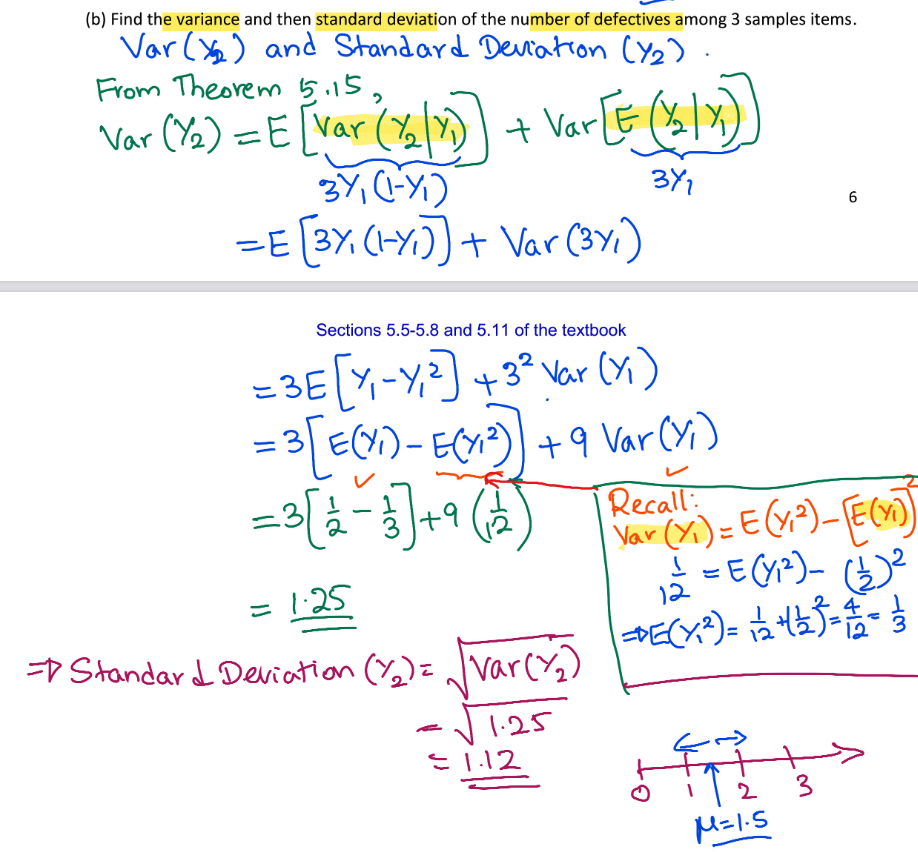 (b) Find the variance and then standard deviation of the number of defectives among 3 samples items.
Var(Y₂) and Standard Deviation (Y₂).
From Theorem 5.15,
Var (Y₂) = E[Var (Y₂|Y₁)] + Var[E (Y₂|Y₁)]
3Y₁(1-Y₁) 3Y₁
6
=E[3Y₁(1-Y₁)] + Var(3Y₁)
Sections 5.5-5.8 and 5.11 of the textbook
=3E[Y₁-Y₁²] + 3² Var (Y₁)
=3[E(Y₁) - E(Y₁²)] + 9 Var(Y₁)
=3[1/2 - 1/3] + 9 (1/12)
= 1.25
Recall:
Var (Y₁) = E(Y₁²) - [E(Y₁)]²
1/12 = E(Y₁²) - (1/2)²
⇒E(Y₁²) = 1/12 + (1/2)² = 4/12 = 1/3
⇒ Standard Deviation (Y₂) = √Var(Y₂)
= √1.25
= 1.12
0 1 2 3
μ=1.5